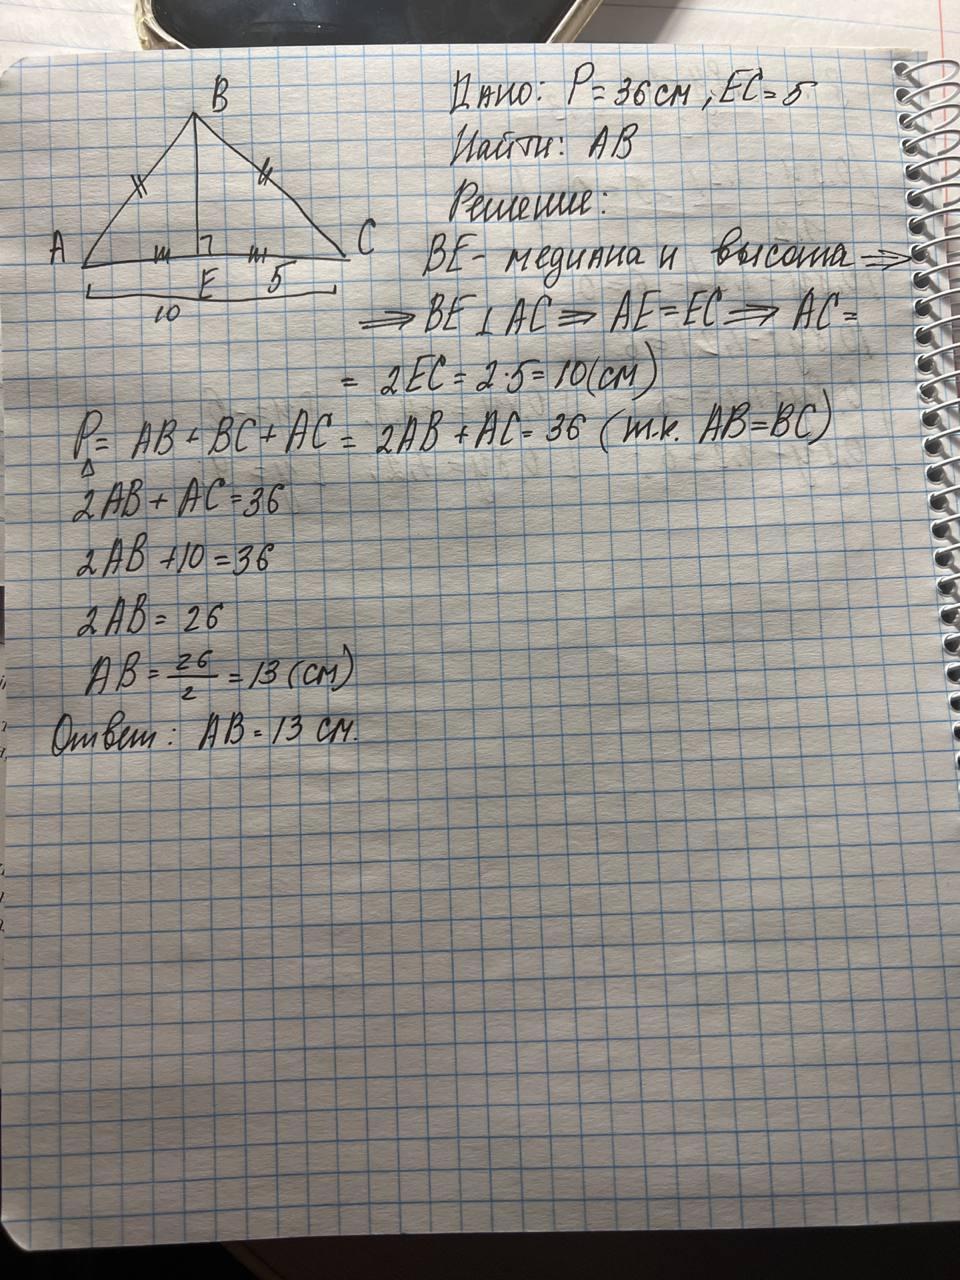 B
Дано: P = 36 см, EC = 5
Найти: AB
Решение:
A
C
E
5
10
BE - медиана и высота ⇒
⇒ BE ⊥ AC ⇒ AE = EC ⇒ AC =
= 2EC = 2·5 = 10 (см)
P△ = AB + BC + AC = 2AB + AC = 36 (т.к. AB = BC)
2AB + AC = 36
2AB + 10 = 36
2AB = 26
AB = 26/2 = 13 (см)
Ответ: AB = 13 см.